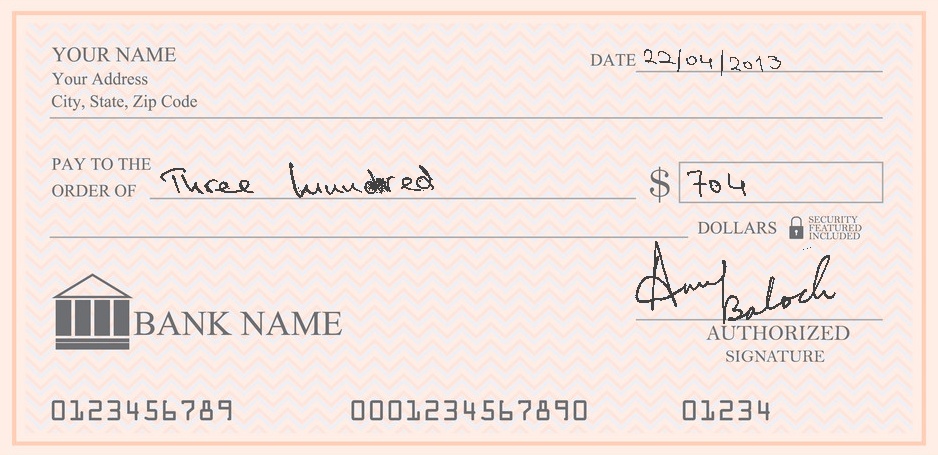 YOUR NAME
Your Address
City, State, Zip Code
DATE 22/04/2013
PAY TO THE
ORDER OF Three hundred $ 704
DOLLARS SECURITY
FEATURED
INCLUDED
Baloch
BANK NAME
AUTHORIZED
SIGNATURE
0123456789 0001234567890 01234